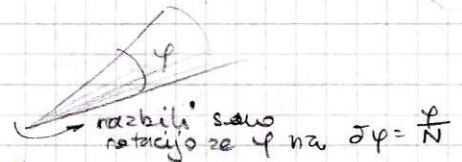 φ
razbili smo
rotacijo za φ na δφ = φ/N